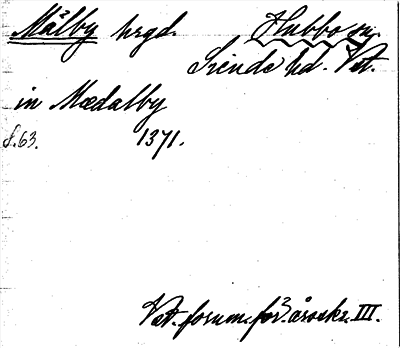 Målby hrgd. Hubbo sn.
Siende hd. Vst.
in Mædalby
s. 63. 1371.
Vst. fornm. för. årsskr. III.